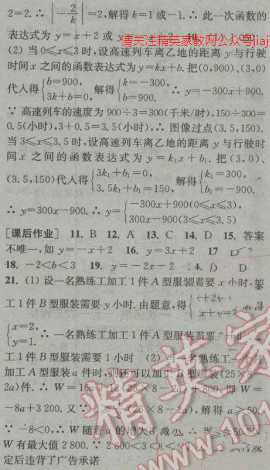 2=2.∴|-2/k|=2,解得k=1或-1.∴此一次函数的
表达式为y=x+2或
(2)当0≤x≤3时,设高速列车离乙地的距离y与行驶
时间x之间的函数表达式为y=kx+b.把(0,900),(3,0)
代入得{b=900, 3k+b=0, 解得{k=-300, b=900. ∴y=-300x+900.
∵高速列车的速度为900÷3=300(千米/时),150÷300=
0.5(小时),3+0.5=3.5(小时),∴图像过点(3.5,150).
当3≤x≤3.5时,设高速列车离乙地的距离y与行驶时
间x之间的函数表达式为y=k₁x+b₁.把(3,0),
(3.5,150)代入得{3k₁+b₁=0, 3.5k₁+b₁=150, 解得{k₁=300,
∴y=300x-900.∴y={-300x+900(0≤x≤3), 300x-900(3≤x≤3.5).
[课后作业] 11.B 12.A 13.C 14.D 15.答案
不唯一,如y=-x+2 16.y=3x+2 17
18.-2<b<3 19.y=-2x-2
21.(1)设一名熟练工加工1件A型服装需要x小时,
工1件B型服装需要y小时.由题意,得
{x=2, y=1. ∴一名熟练工加工1件A型服装需要
工1件B型服装需要1小时 (2)当一名熟练工
工A型服装a件时,则还可以加工B型服装(25×8-
2a)件.∴W=16a+12(25×8-2a)+800,即W=
-8a+3200.又
∵-8<0,∴W随着a的增大而减小
W有最大值2800.∵2800<3
定后违背了广告承诺